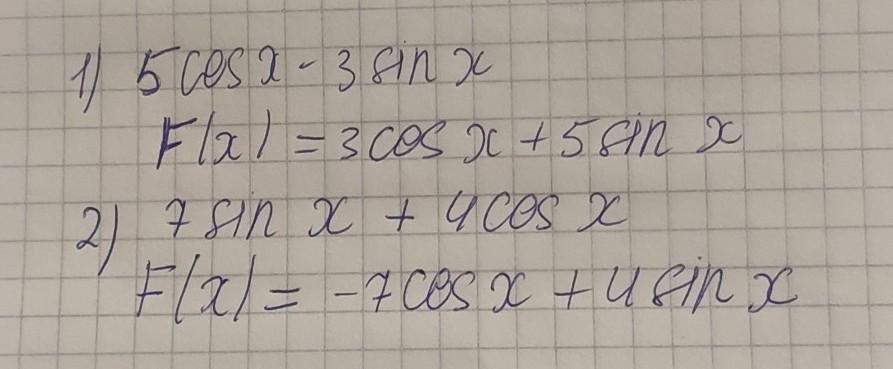 1) 5 cos x - 3 sin x
F(x) = 3 cos x + 5 sin x
2) 7 sin x + 4 cos x
F(x) = -7 cos x + 4 sin x